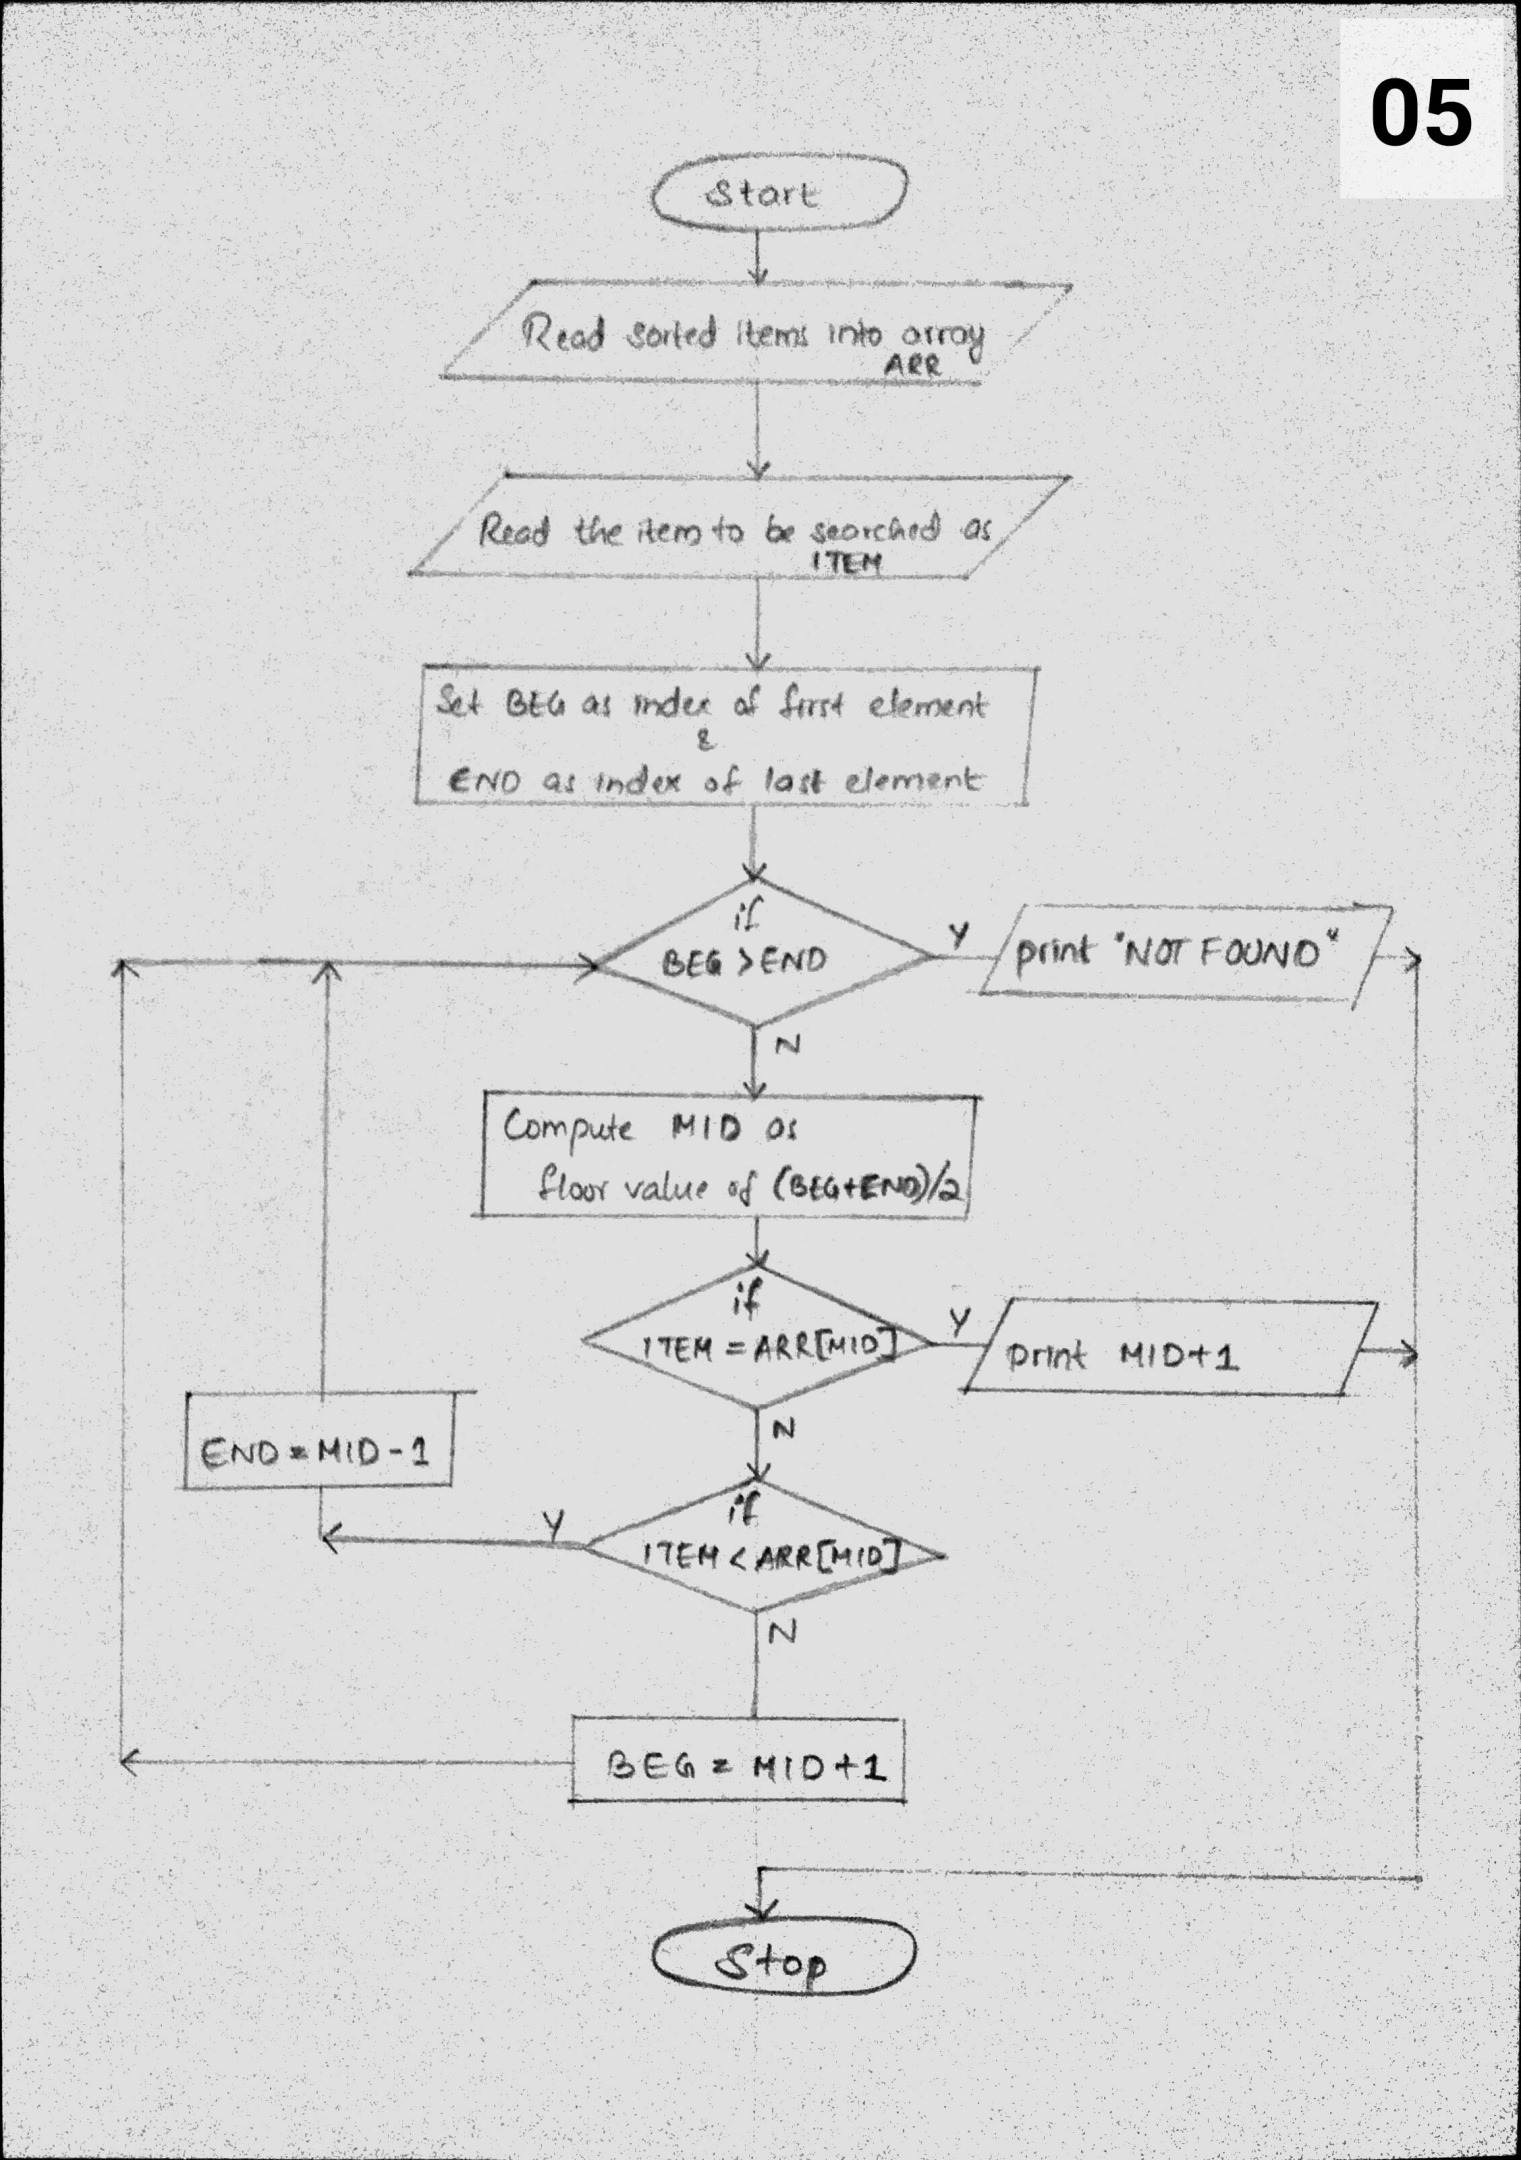 05
Start
Read sorted items into array
ARR
Read the item to be searched as
ITEM
Set BEG as index of first element
&
END as index of last element
if
BEG > END
Y
print "NOT FOUND"
N
Compute MID as
floor value of (BEG+END)/2
if
ITEM = ARR[MID]
Y
print MID+1
N
END = MID-1
if
ITEM < ARR[MID]
Y
N
BEG = MID+1
Stop